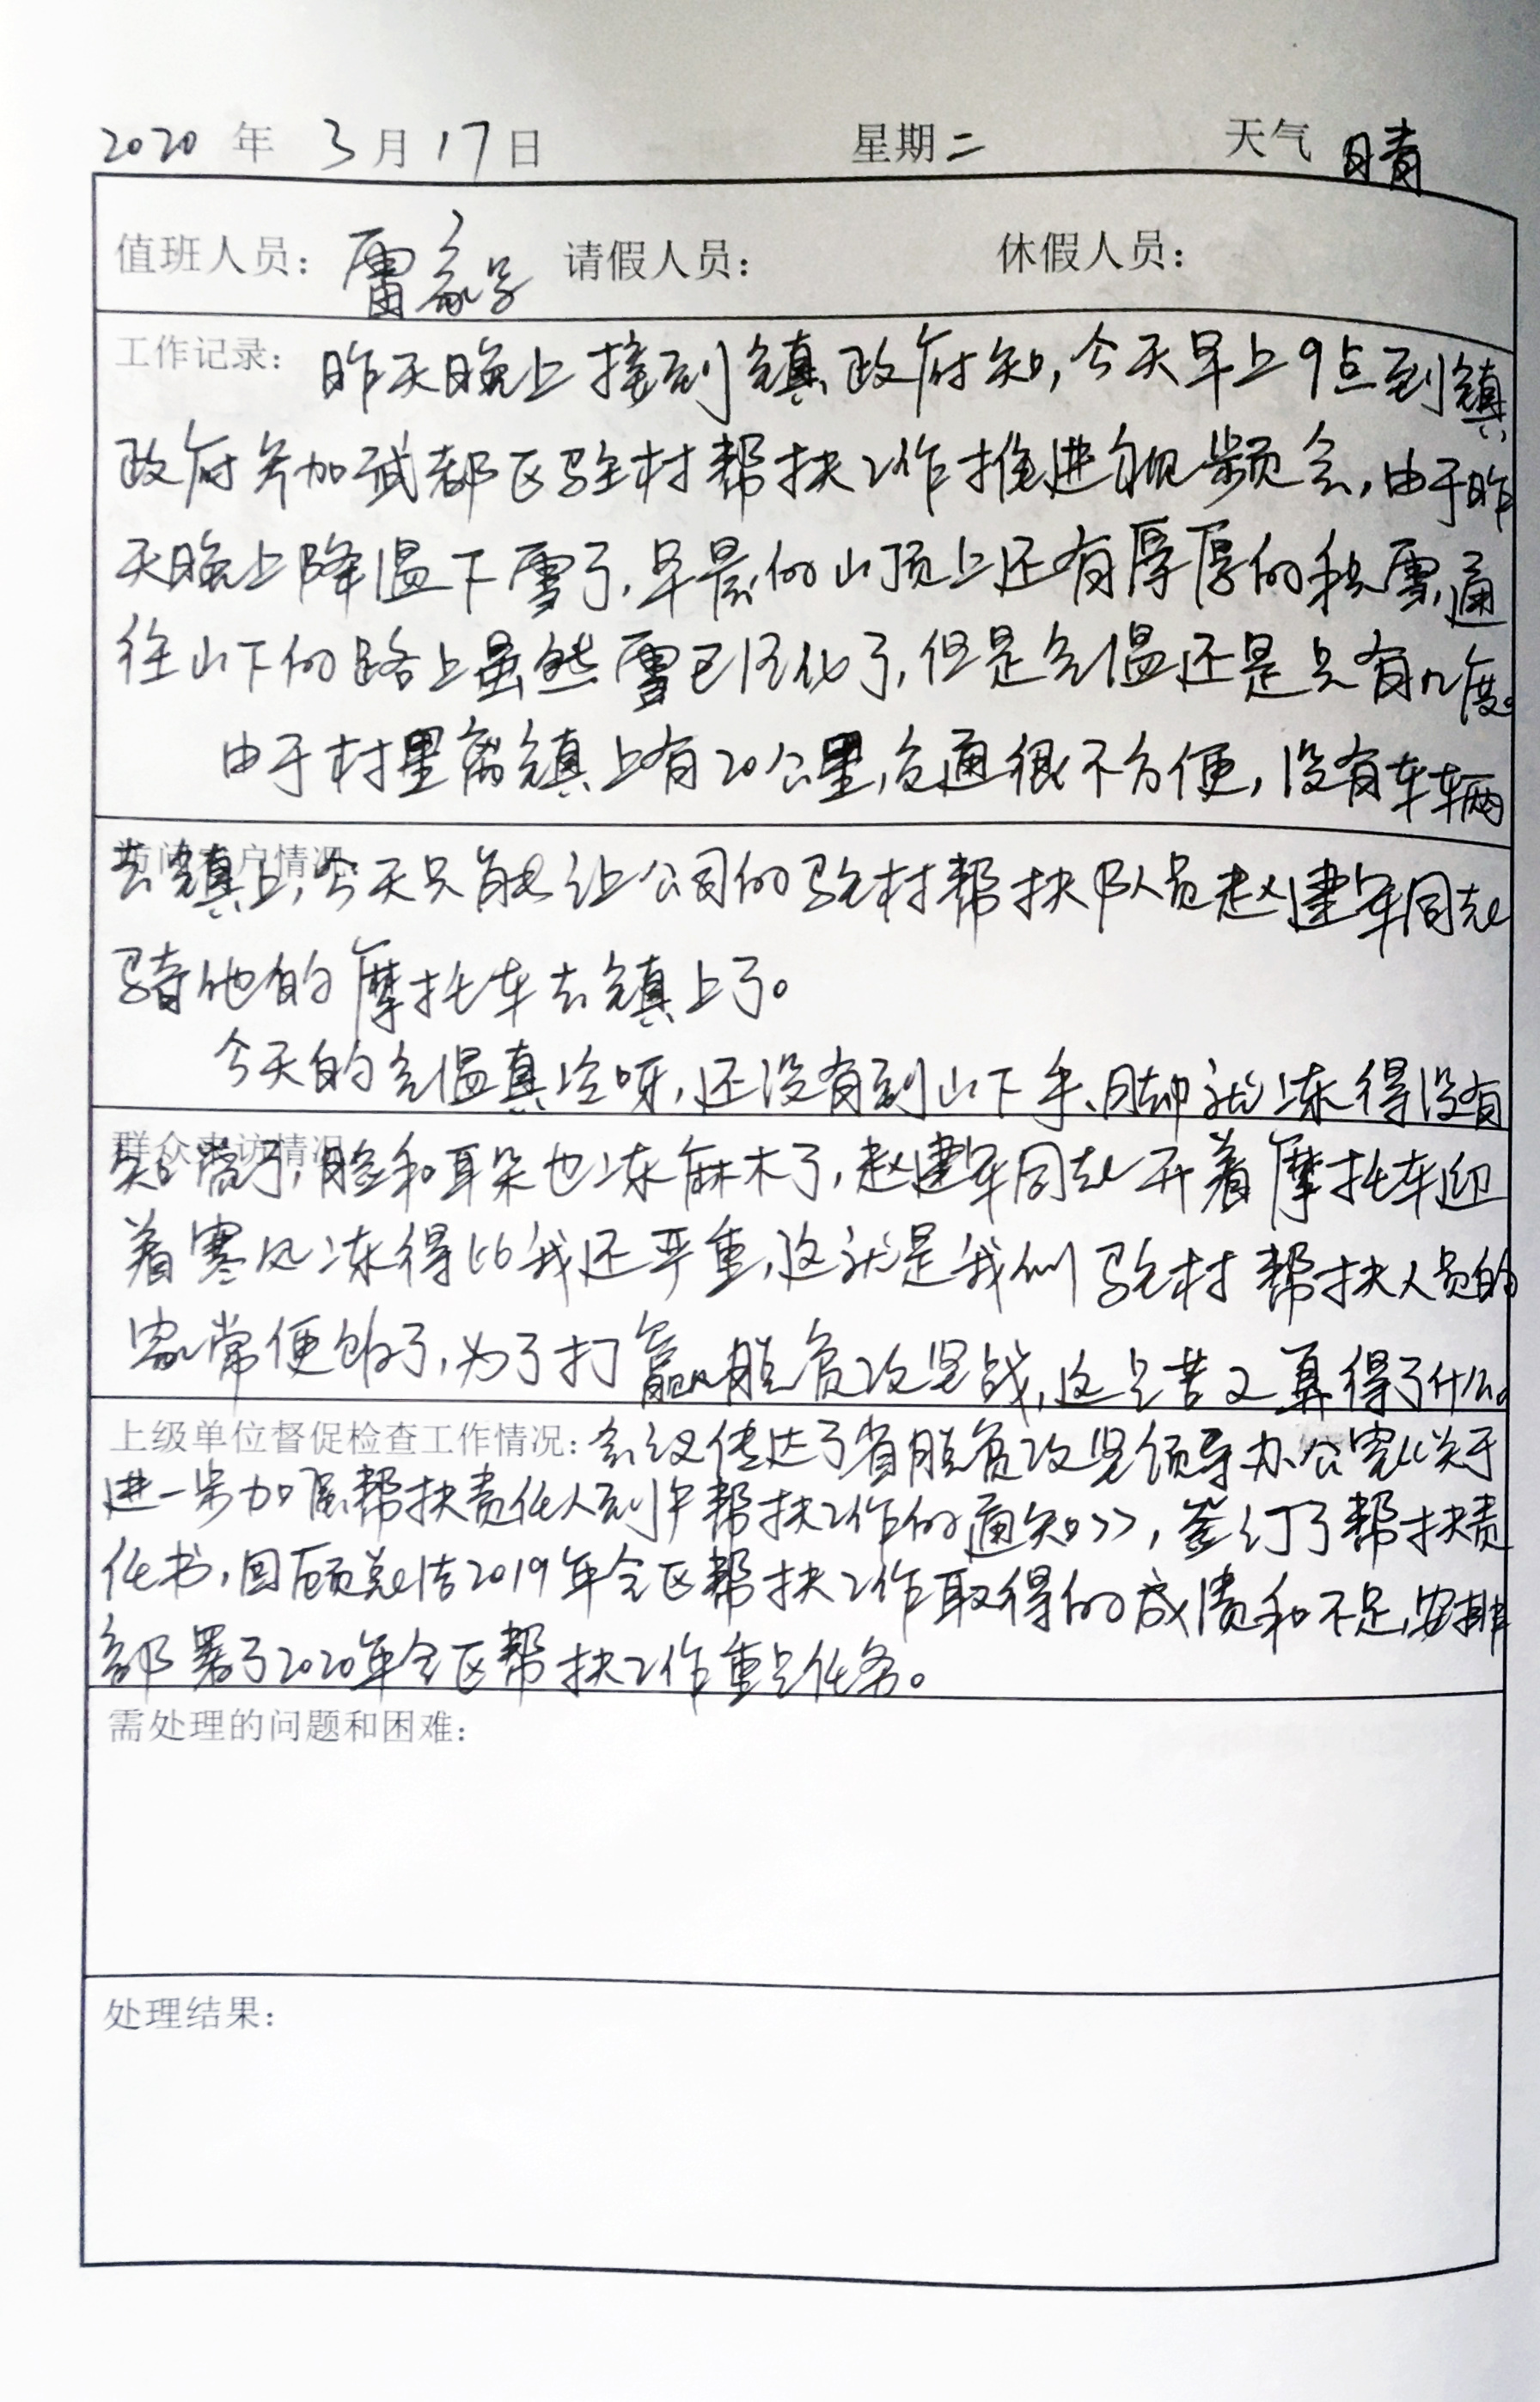 2020 年 3 月 17 日 星期 二 天气 晴
值班人员： 雷家学 请假人员： 休假人员：
工作记录： 昨天晚上接到镇政府知，今天早上9点到镇
政府参加武都区驻村帮扶工作推进视频会，由于昨
天晚上降温下雪了，早晨的山顶上还有厚厚的积雪，通
往山下的路上虽然雪已经化了，但是气温还是只有几度。
由于村里离镇上有20公里，交通很不方便，没有车辆
访问 户情况：
去镇上，今天只能让公司的驻村帮扶队员赵建军同志
骑他的摩托车去镇上了。
今天的气温真冷呀，还没有到山下手、脚就冻得没有
群众来访情况：
知觉了，脸和耳朵也冻麻木了，赵建军同志开着摩托车迎
着寒风冻得比我还严重，这就是我们驻村帮扶人员的
家常便饭了，为了打赢脱贫攻坚战，这点苦又算得了什么。
上级单位督促检查工作情况：会议传达了省脱贫攻坚领导办公室《关于
进一步加强帮扶责任人到户帮扶工作的通知》，签订了帮扶责
任书，回顾总结2019年全区帮扶工作取得的成绩和不足，安排
部署了2020年全区帮扶工作重点任务。
需处理的问题和困难：
处理结果：